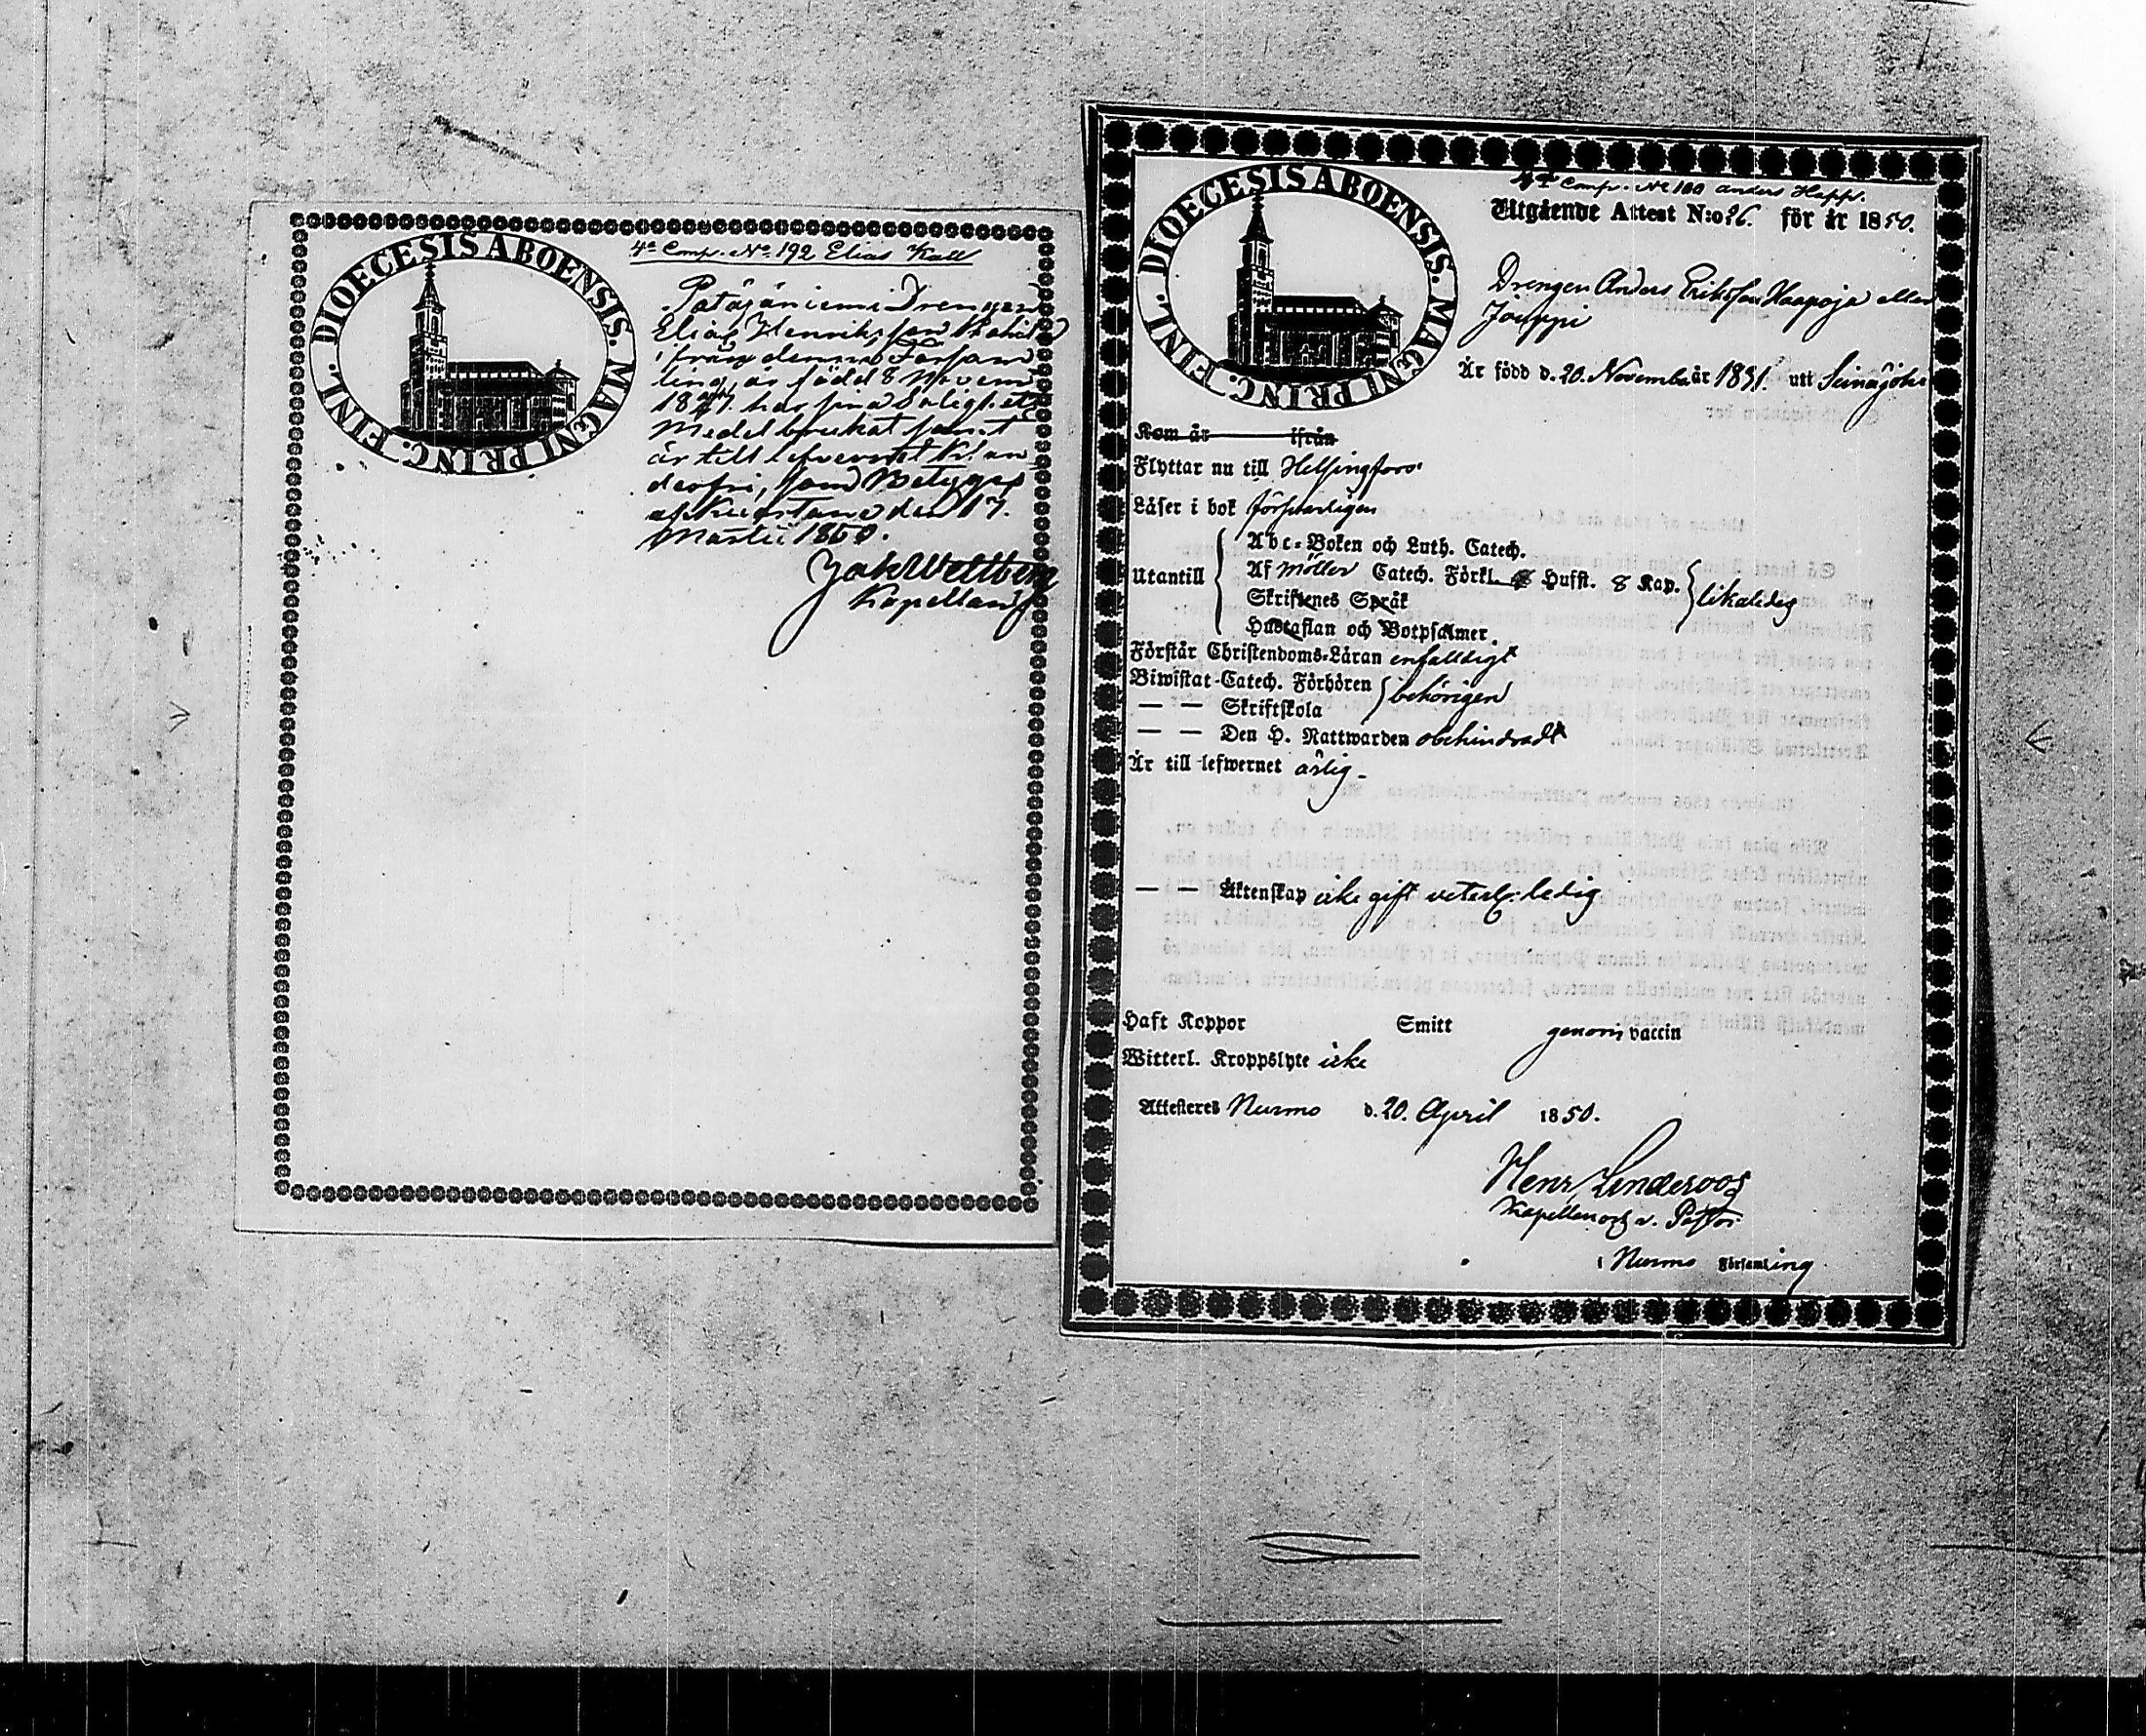 DIOECESIS ABOENSIS. MAGNI PRINC. FINL.
4e Comp. No 192 Elias Kall
Potäjäniemi Drengen
Elias Henriksson
ifrån denna Församl
ling, är född 8 Novem
18 har sina Salighets
Medel brukat samt
är till lefvernet klan
derfri, som Betygas
af Kuortane den 17.
Martii 1850.
Jak Wettberg
Kapellan
DIOECESIS ABOENSIS. MAGNI PRINC. FINL.
4e Comp. No 180 Anders Happ.
Utgående Attest N:o 26. för år 1850.
Drengen Anders Eriksson Haapoja eller
Jouppi
Är född d. 20. November år 1831. utt Seinäjoki
Kom år ifrån
Flyttar nu till Helsingfors
Läser i bok försvarligen
Utantill
Abc-Boken och Luth. Catech.
Af Möller Catech. Förkl. Hufst. 8 Kap.
Skriftenes Språk
Hustaflan och Botpsalmer.
likaledes
Förstår Christendoms-Läran enfalldigt
Biwistat Catech. Förhören
— — Skriftskola
behörigen
— — Den H. Nattwarden obehindradt
Är till lefwernet ärlig -
— — Äktenskap icke gift veterl. ledig
Haft Koppor Smitt genom vaccin
Witterl. Kroppslyte icke
Attesteres Nurmo d. 20. April 1850.
Henr. Linderoos
Kapellan och v. Pastor
i Nurmo Församling